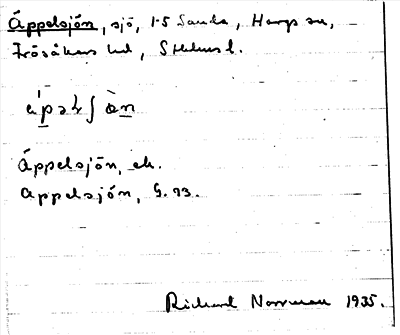 Äppelsjön, sjö, 1-5 Sanda, Hargs sn,
Frösåkers hd, Sthlms l.
Äppelsjön, ek.
Appelsjön, G. 33.
Rickard Norrman 1935.